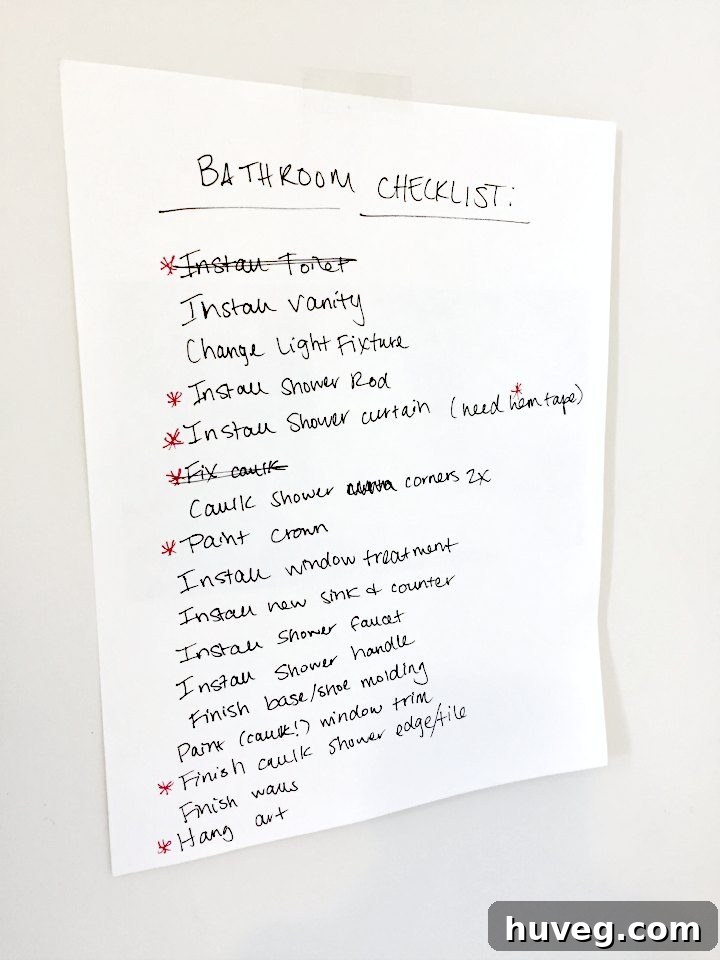 BATHROOM CHECKLIST:
* Install Toilet
Install vanity
Change Light Fixture
* Install Shower Rod
* Install Shower curtain (need hem tape)
* Fix caulk
Caulk shower corners 2x
* Paint crown
Install window treatment
Install new sink & counter
Install shower faucet
Install shower handle
Finish base/shoe molding
Paint (caulk!) window trim
* Finish caulk shower edge/tile
Finish walls
* Hang art
huveg.com